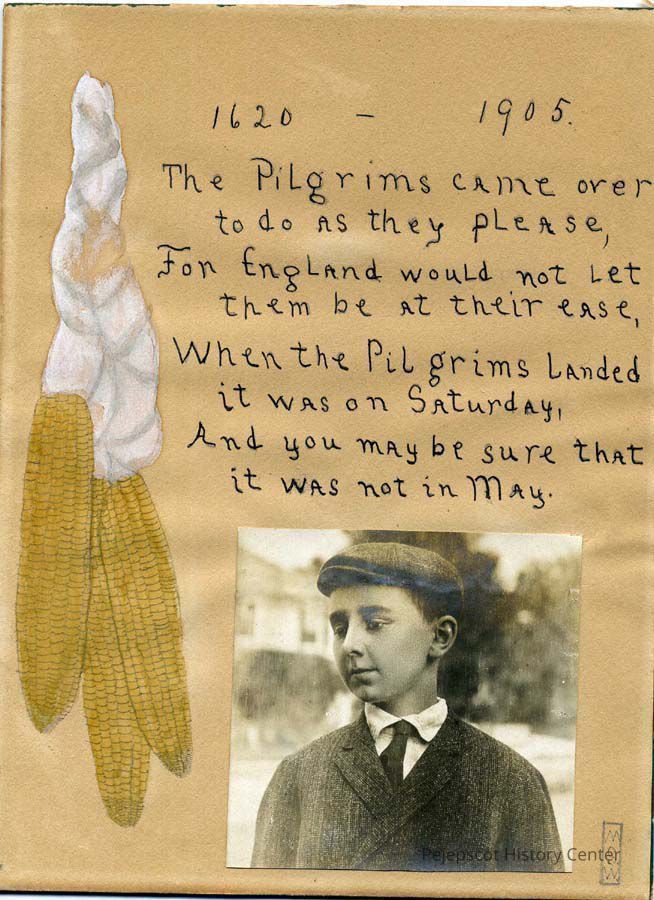 1620 - 1905.
The Pilgrims came over
to do as they please,
For England would not let
them be at their ease,
When the Pilgrims landed
it was on Saturday,
And you may be sure that
it was not in May.
Pejepscot History Center